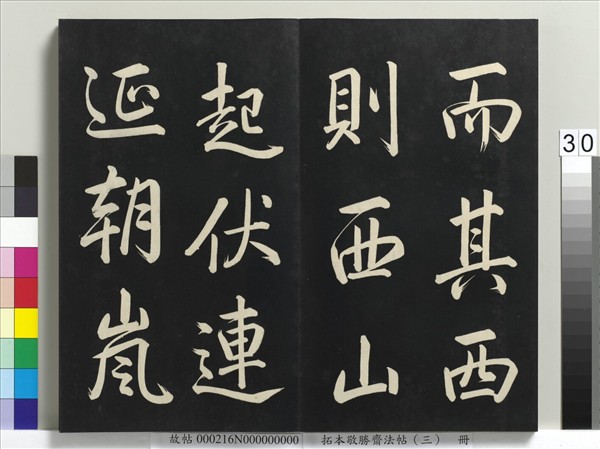 而其西
則西山
起伏連
延朝嵐
故帖 000216N000000000 拓本敬勝齋法帖（三） 冊
30